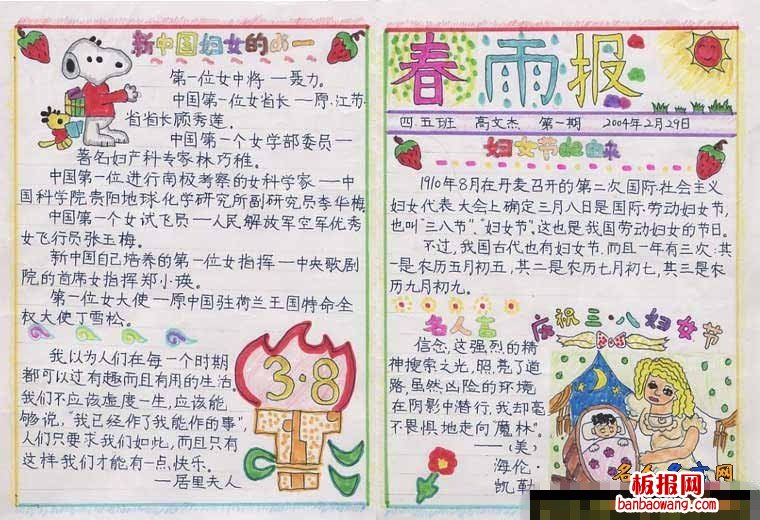 新中国妇女的第一
第一位女中将——聂力。
中国第一位女省长——原江苏
省省长顾秀莲。
中国第一个女学部委员——
著名妇产科专家林巧稚。
中国第一位进行南极考察的女科学家——中
国科学院贵阳地球化学研究所副研究员李华梅。
中国第一个女试飞员——人民解放军空军优秀
女飞行员张玉梅。
新中国自己培养的第一位女指挥——中央歌剧
院的首席女指挥郑小瑛。
第一位女大使——原中国驻荷兰王国特命全
权大使丁雪松。
我以为人们在每一个时期
都可以过有趣而且有用的生活。
我们不应该虚度一生,应该能
够说,“我已经作了我能作的事”,
人们只要求我们如此,而且只有
这样我们才能有一点快乐。
——居里夫人
3·8
春雨报
四.五班 高文杰 第一期 2004年2月29日
妇女节的由来
1910年8月在丹麦召开的第二次国际社会主义
妇女代表大会上确定三月八日是国际劳动妇女节,
也叫“三八节”.“妇女节”,这也是我国劳动妇女的节日。
不过,我国古代也有妇女节.而且一年有三次:其
一是农历五月初五,其二是农历七月初七,其三是农
历九月初九。
名人言
信念,这强烈的精
神搜索之光,照亮了道
路,虽然凶险的环境
在阴影中潜行,我却毫
不畏惧地走向“魔林”。
——(美)
海伦·
凯勒
庆祝三·八妇女节
板报网
banbaowang.com